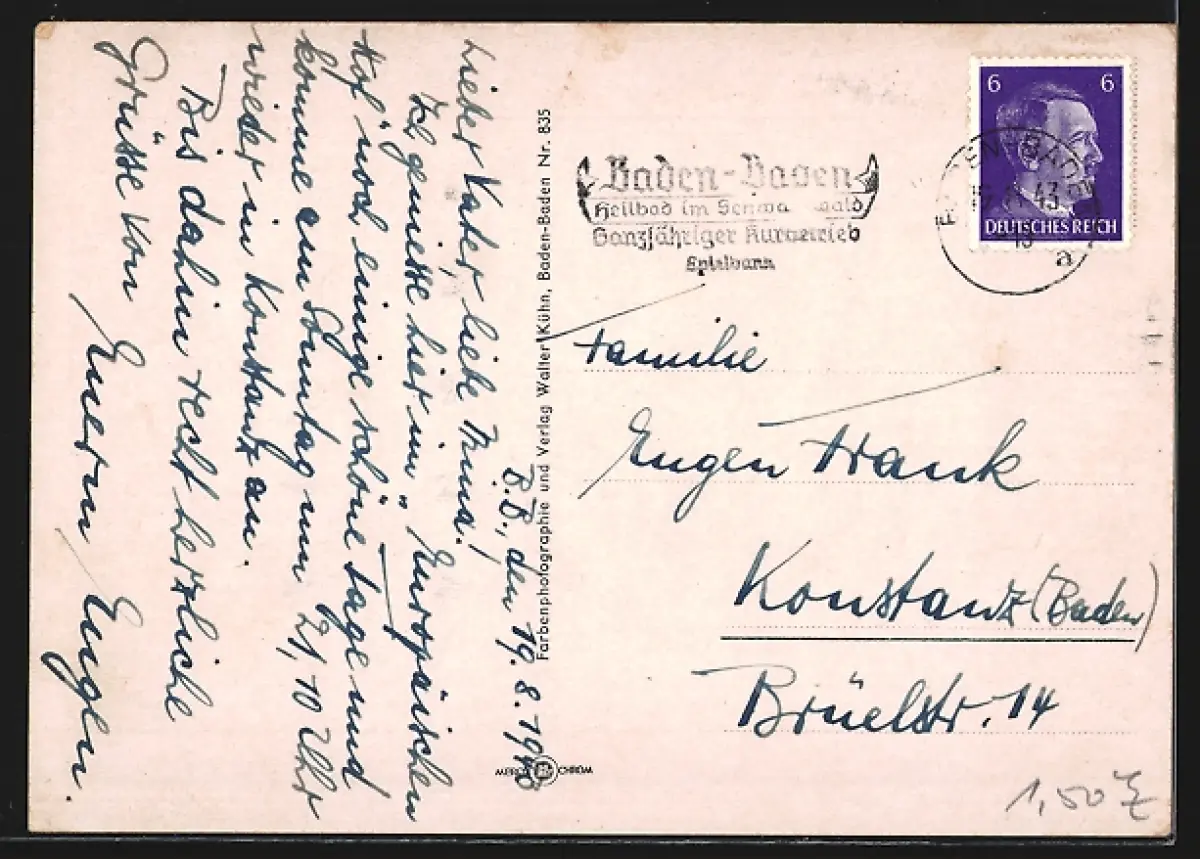 B.B., den 19.8.1943
Lieber Vater, liebe Anna!
Ich geniesse hier im "Europäischen
Hof" noch einige schöne Tage und
komme am Sonntag um 21,10 Uhr
wieder in Konstanz an.
Bis dahin recht herzliche
Grüsse von
Euerm Eugen.
Farbenphotographie und Verlag Walter Kühn, Baden-Baden Nr. 835
CHROM
Baden-Baden
Heilbad im Schwarzwald
Ganzjähriger Kurbetrieb
Spielbank
6 6
DEUTSCHES REICH
BADEN
43
a
Familie
Eugen Hank
Konstanz (Baden)
Brüelstr. 14
1,50